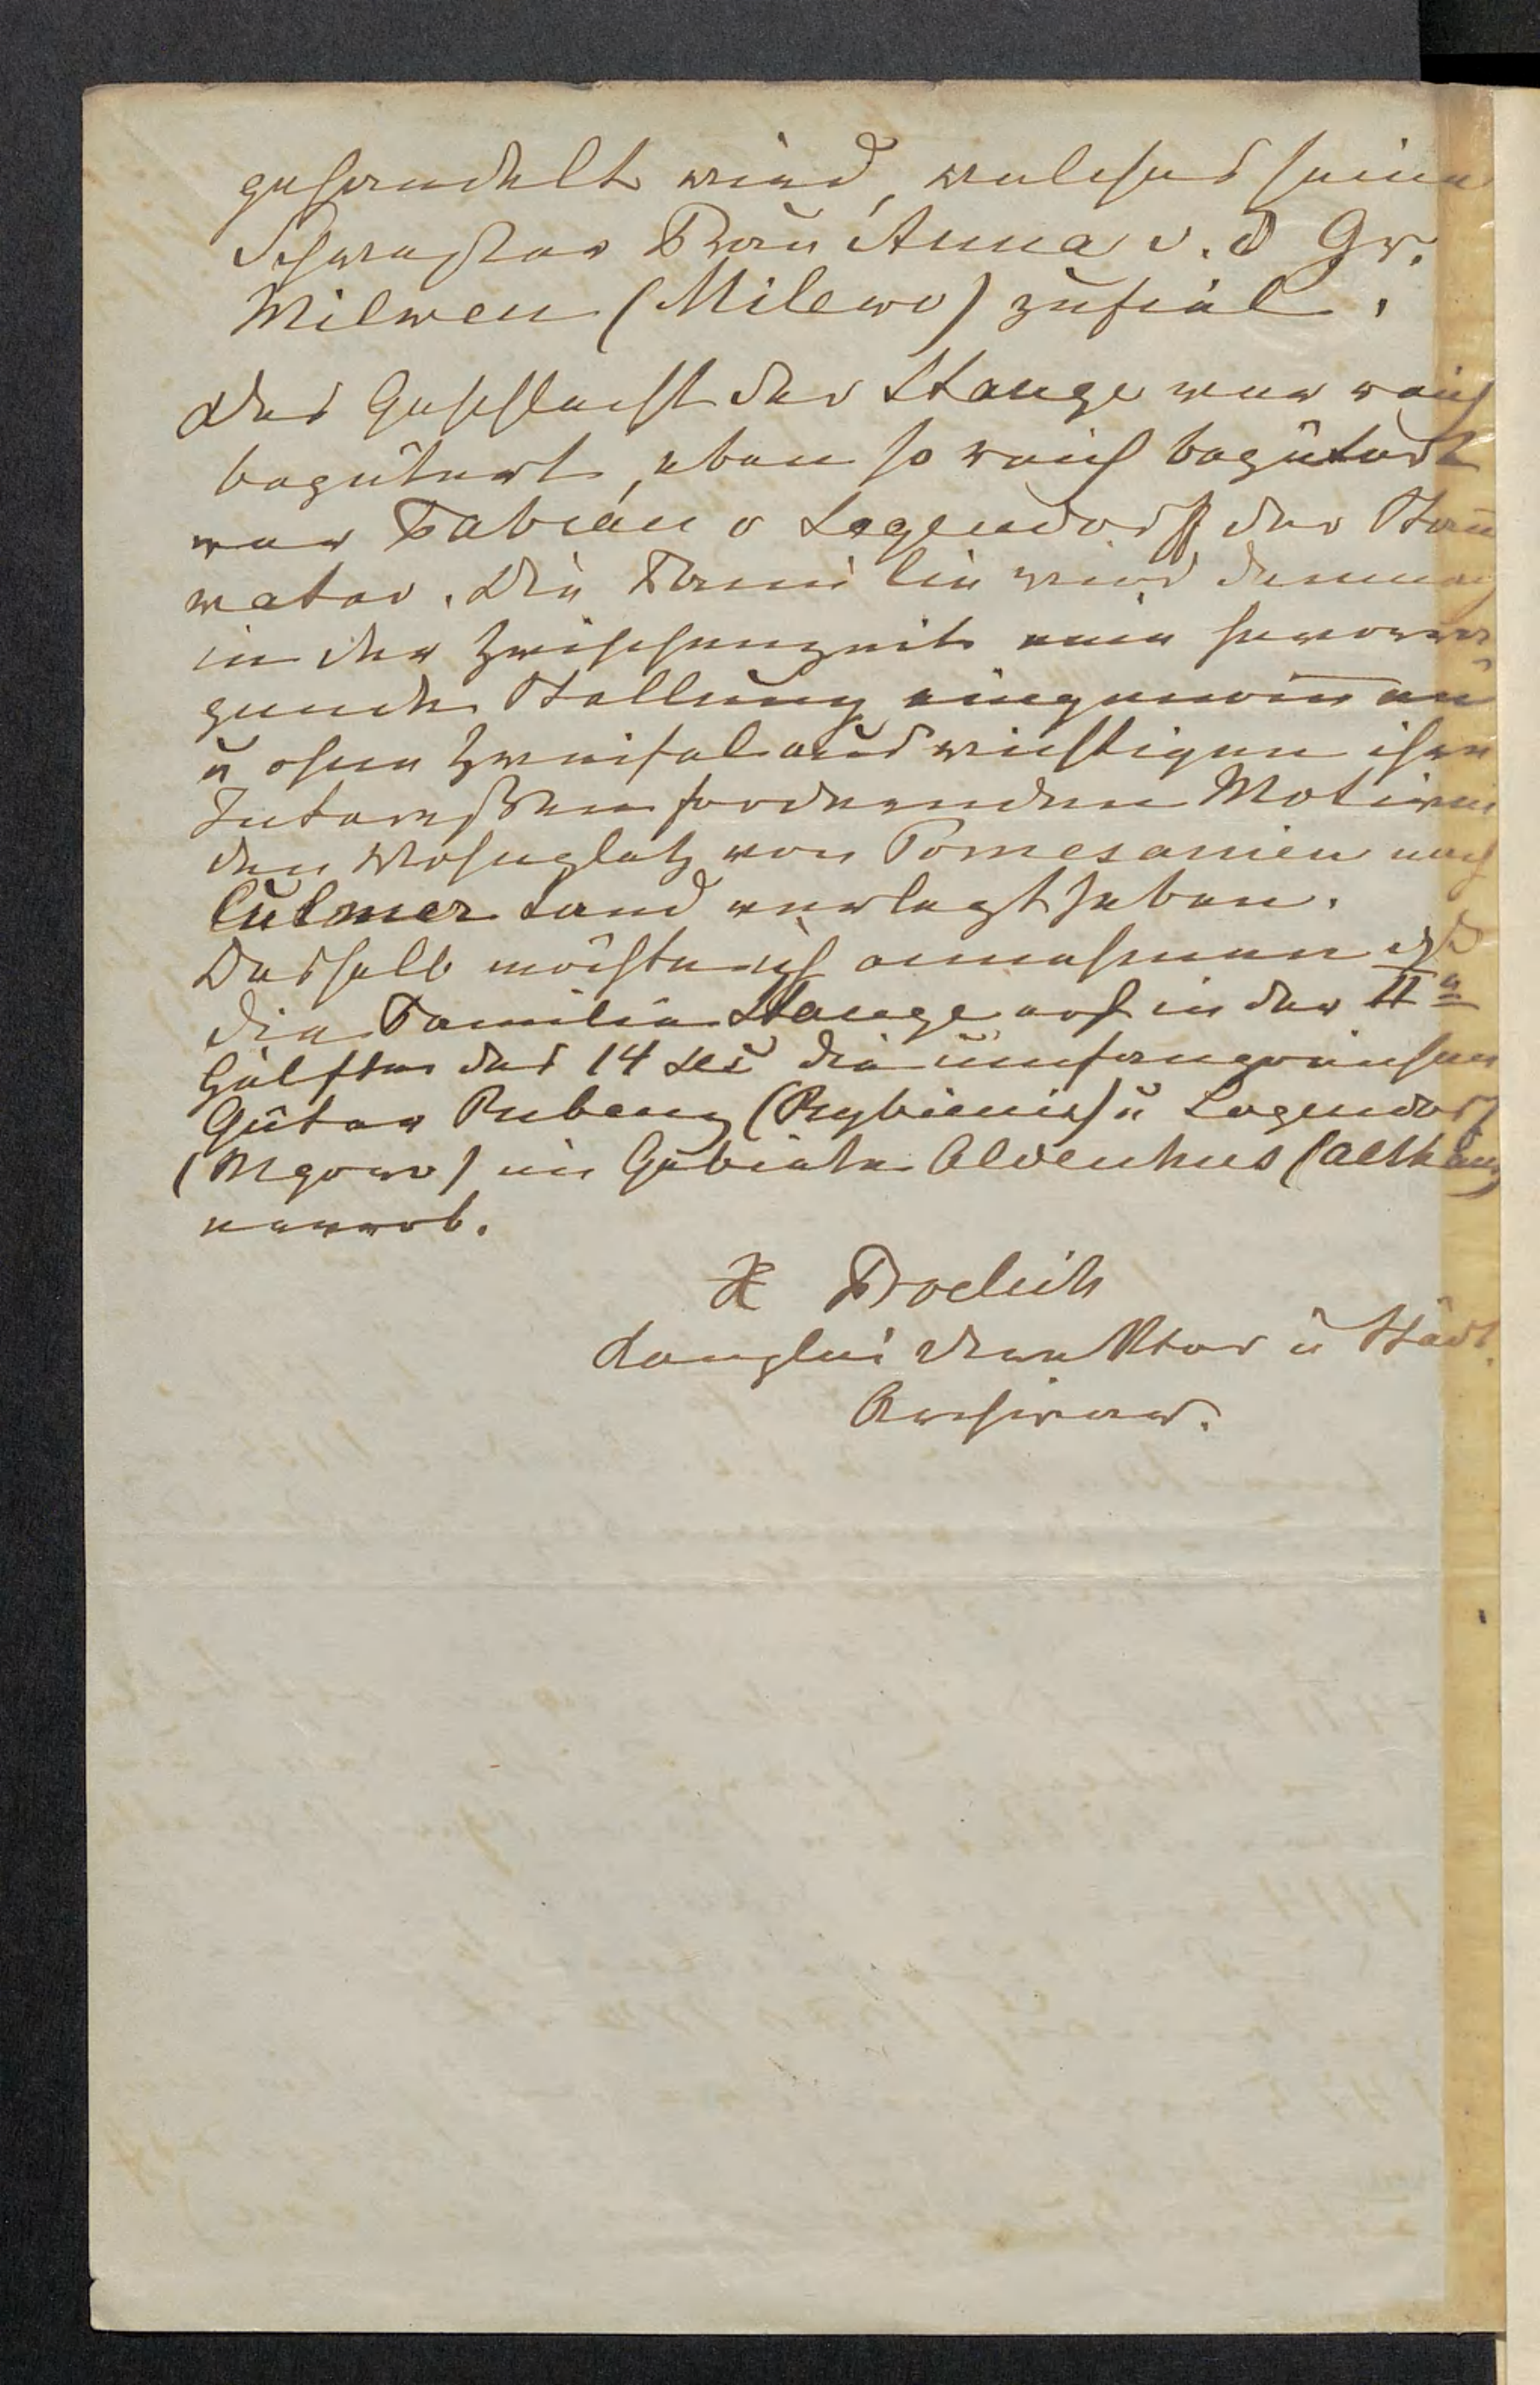 gehandelt wird, welches seine
Schwester Frau Anna v. d Gr.
Milwen (Milewo) zufiel.
Das Geschlecht der Stange war reich
begütert, eben so reich begütert
war Fabian v Legendorff der Stam
vater. Die Familie wird demnach
in der Zwischenzeit eine hervorra
gende Stellung eingenom̅en
u ohne Zweifel aus wichtigen ihre
Interessen fordernden Motiven
den Wohnplatz von Pomesanien nach
Culmer Land verlegt haben.
Deshalb möchte ich annehmen
die Familie Stange erst in der IIn
Hälfte des 14 Sec die umfangreichen
Güter Rubenz (Rybieniec) u Legendorf
(Mgowo) im Gebiete Aldenhus (Althaus)
erwarb.
X Froelich
Kanzlei Direktor u Städt.
Archivar.